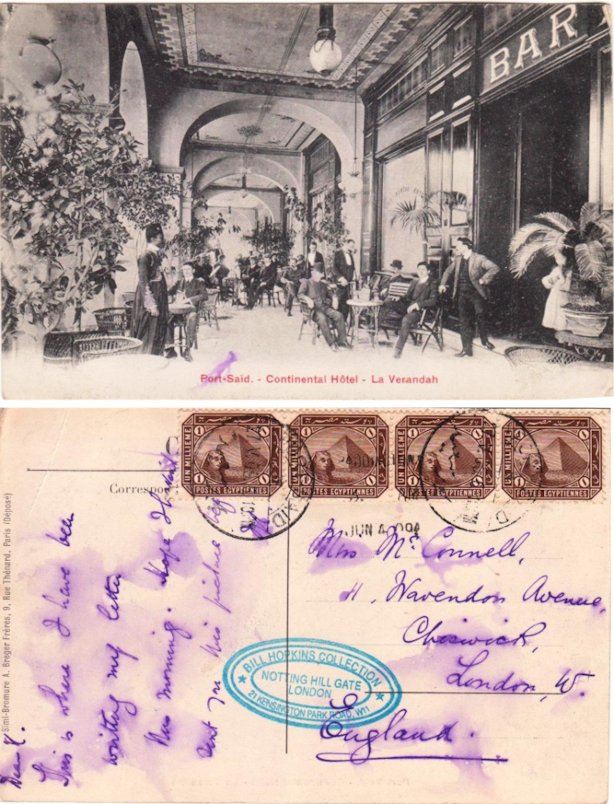 BAR
Port-Said. - Continental Hôtel - La Verandah
UN MILLIEME
POSTES EGYPTIENNES
UN MILLIEME
POSTES EGYPTIENNES
UN MILLIEME
POSTES EGYPTIENNES
UN MILLIEME
POSTES EGYPTIENNES
Corresp
JUN 4 09
Simili-Bromure A. Breger Frères, 9, Rue Thénard, Paris (Déposé)
Dear K.
This is where I have been
writing my letter
this morning. Hope
this picture
Mrs McConnell,
11, Wavendon Avenue,
Chiswick,
London, W.
England.
BILL HOPKINS COLLECTION
NOTTING HILL GATE
LONDON
21 KENSINGTON PARK ROAD, W11